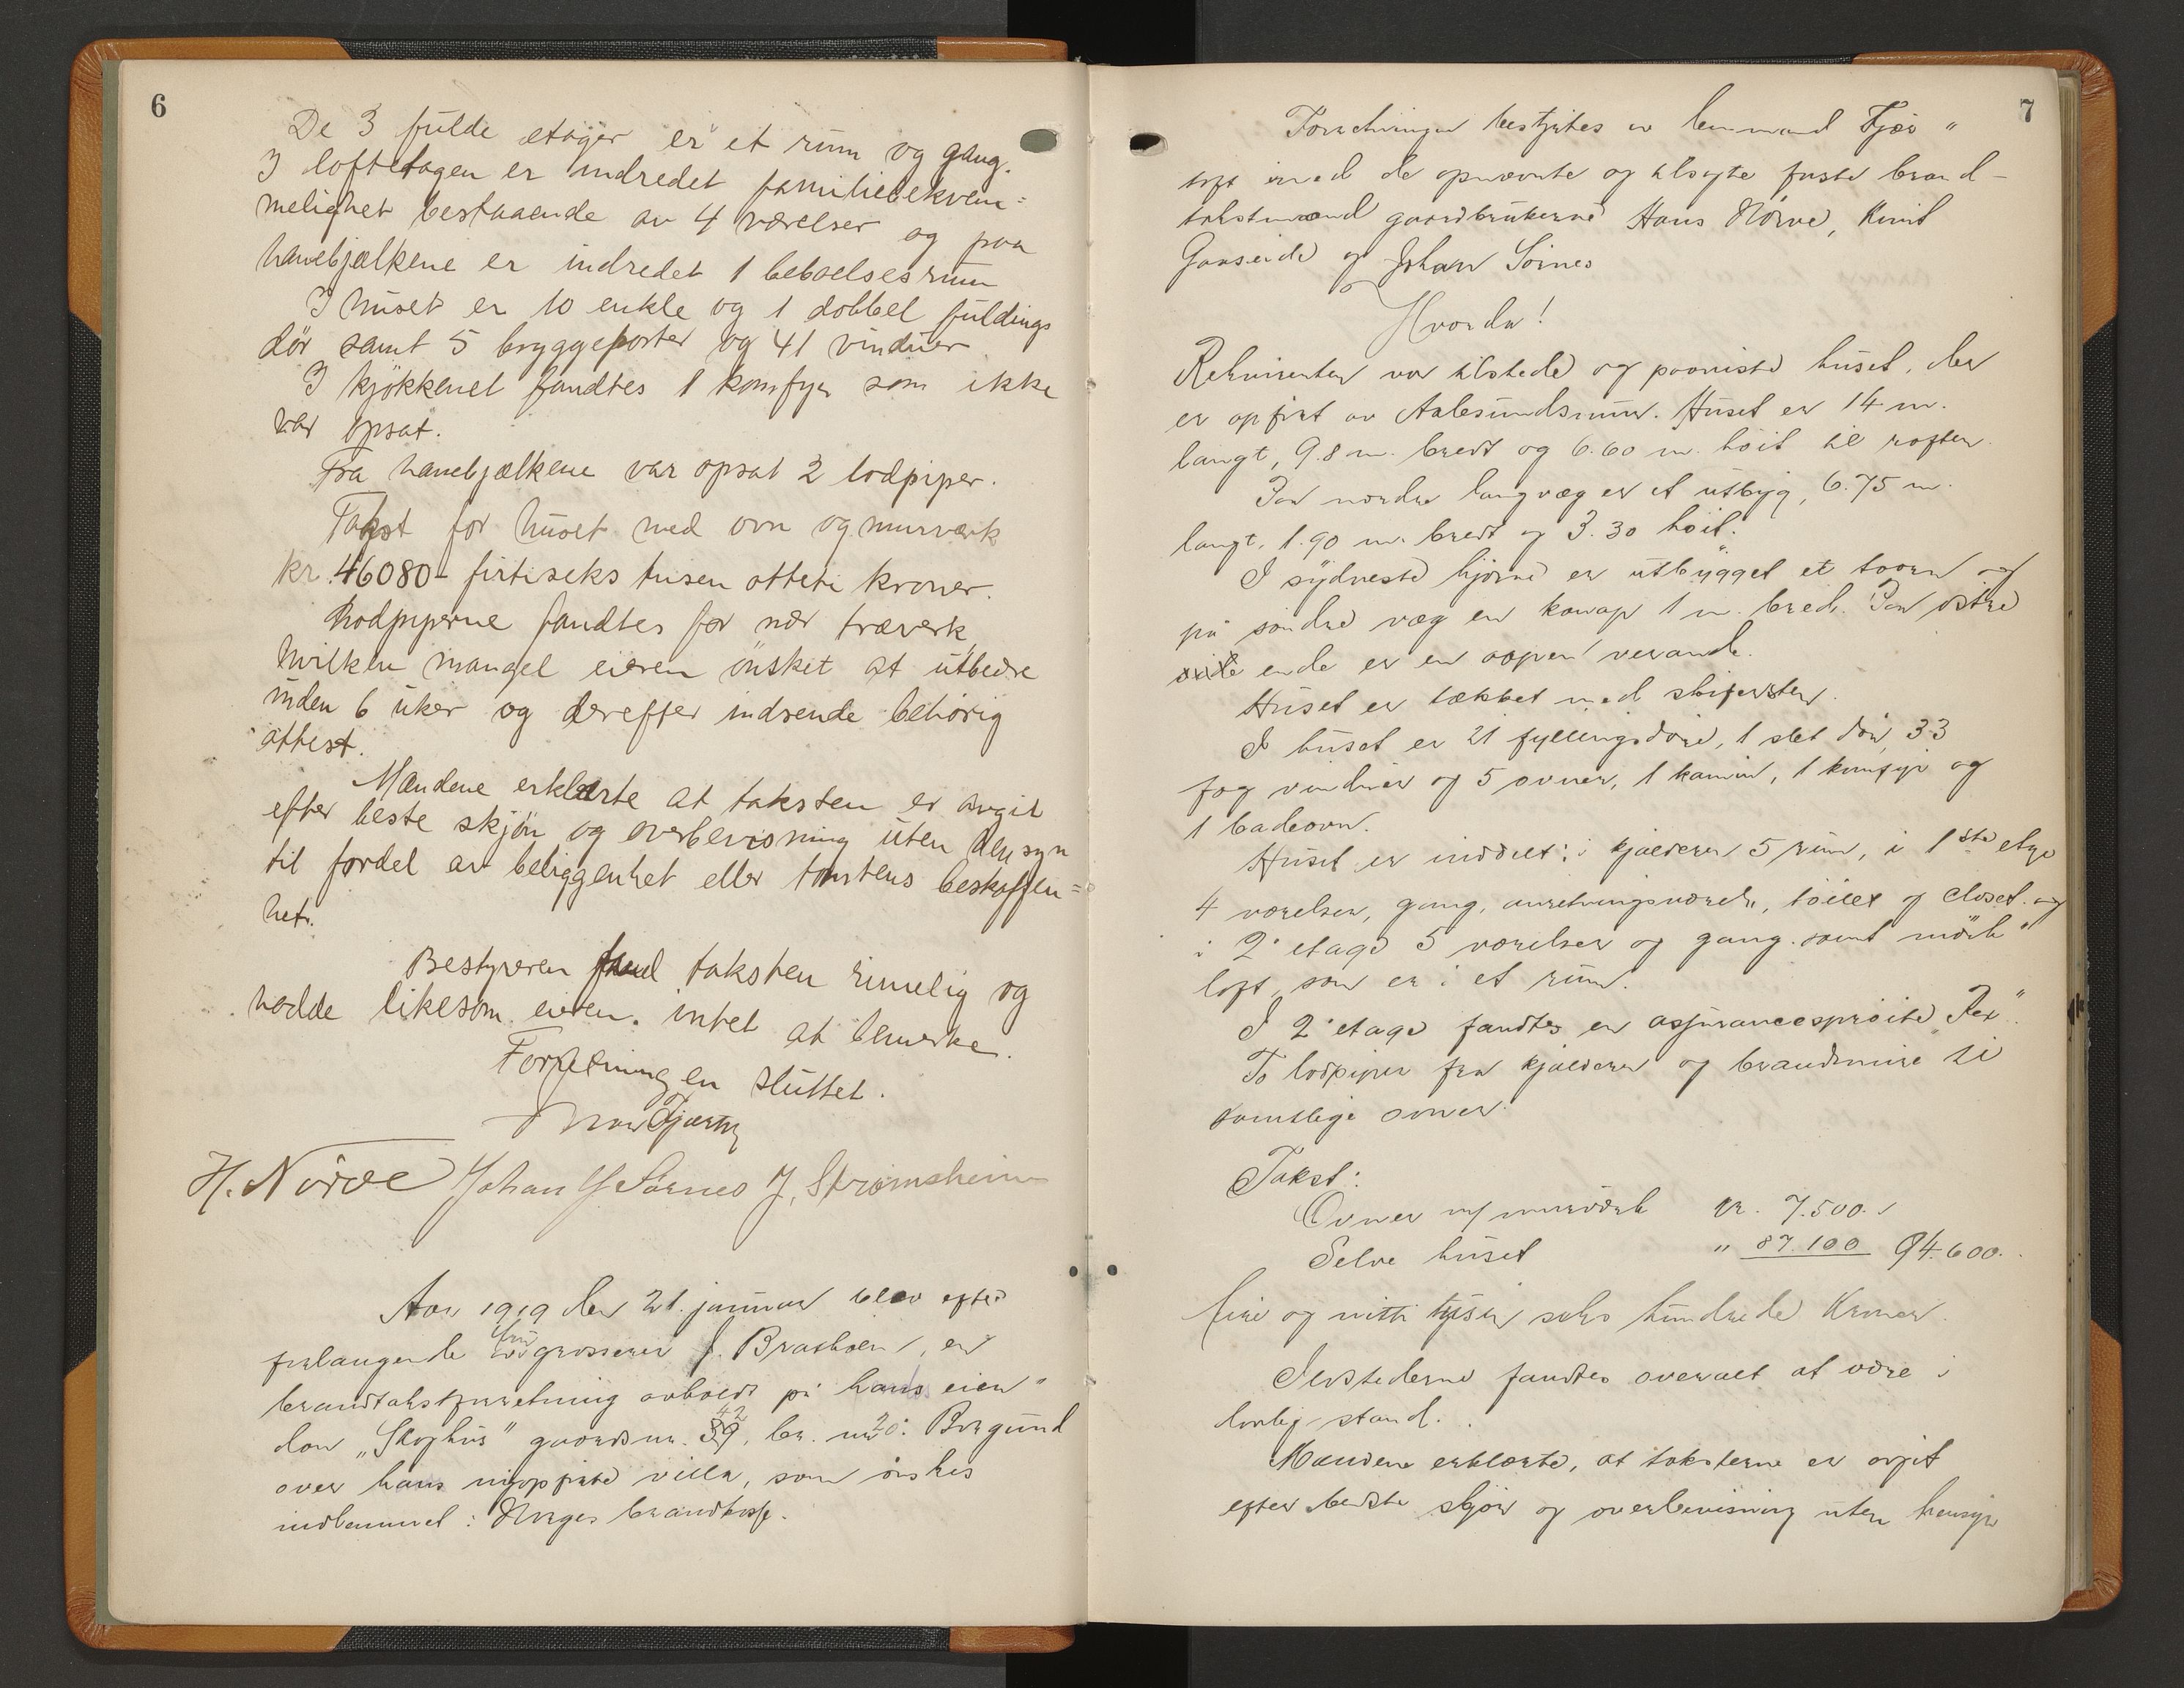 6
De 3 fulde etager er et rum og gang.
I loftetagen er indredet familiebekvem=
melighet bestaaende av 4 værelser og paa
hanebjælkene er indredet 1 beboelsesrum
I huset er 10 enkle og 1 dobbel fuldings
dør samt 5 bryggeporter og 41 vinduer
I kjøkkenet fandtes 1 komfyr som ikke
var opsat.
Fra hanebjælkene var opsat 2 lodpiper.
Takst for huset med ovn og murværk
kr. 46080- firtiseks tusen otteti kroner.
Lodpiperne fandtes for nær træverk,
hvilken mangel eieren ønsket at utbedre
inden 6 uker og derefter indsende behørig
attest.
Mændene erklærte at taksten er avgit
efter beste skjøn og overbevisning uten hensyn
til fordel av beliggenhet eller tomtens beskaffen=
het.
Bestyreren fandt taksten rimelig og
hadde likesom eieren intet at bemerke.
Forretningen sluttet.
H. Nörve Johan Sørnes J. Strømsheim
Aar 1919 den 21. januar blev efter
forlangende av grosserer J. Brasteen, en
brandtakstforretning avholdt på hans eien"
dom "Skoghus" gaardsnr. 42 br. nr. 20 i Borgund
over hans nyopførte villa, som ønskes
indlemmet i Norges brandkasse.
7
Forretningen bestyrtes av lensmand Fjør"
toft med de opnævnte og tilsagte faste brand-
takstmænd gaardbrukerne Hans Nørve, Knut
Gaaseide og Johan Sørnes
Hvorda!
Rekvirenten var tilstede og paaviste huset, der
er opført av Aalesundsmur. Huset er 14 m.
langt, 9.8 m. bredt og 6.60 m. høit til raften.
Paa nordre langvæg er et utbyg, 6.75 m.
langt, 1.90 m. bredt og 3.30 høit.
I sydvestre hjørne er utbygget et taarn og
på søndre væg en karnap 1 m. bred. Paa østre
ende er en aapen veranda.
Huset er tækket med skifersten.
I huset er 21 fyllingsdøre, 1 slet dør, 33
fag vinduer og 5 ovner, 1 kamin, 1 komfyr og
1 badeovn.
Huset er inddelt: i kjælderen 5 rum, i 1ste etage
4 værelser, gang, anretningsværelse, toilet og closet og
i 2. etage 5 værelser og gang samt mørk"
loft, som er i et rum.
I 2. etage fandtes en assurancesprøite "Rex".
To lodpiper fra kjælderen og brandmure til
samtlige ovner.
Takst:
Ovner m/ murværk kr. 7.500.
Selve huset " 87.100 94.600.
fire og nitti tusen seks hundrede kroner.
Ildstederne fandtes overalt at være i
lovlig stand.
Mændene erklærte, at taksterne er avgit
efter bedste skjøn og overbevisning uten hensyn